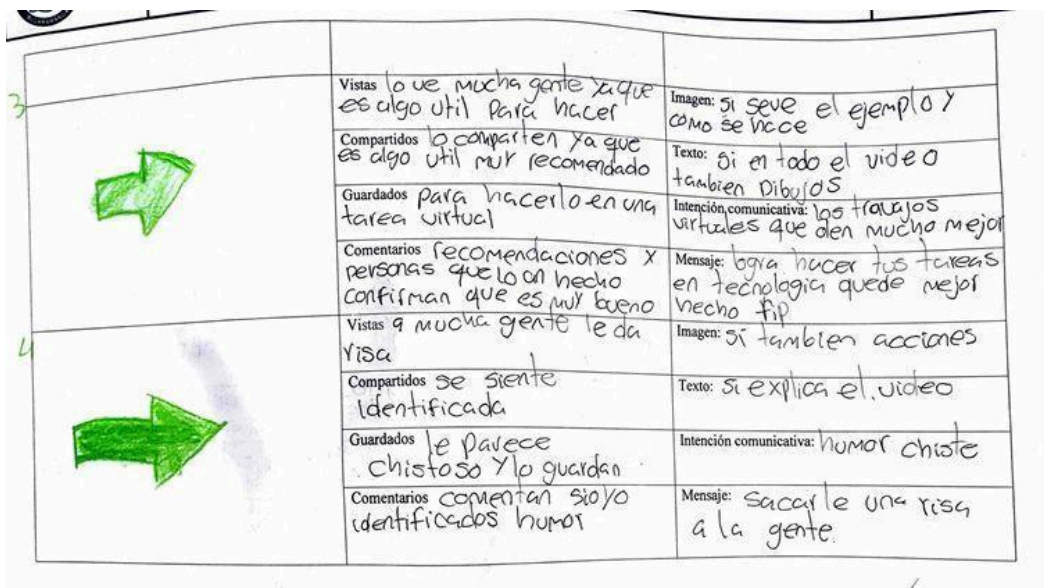 3
Vistas lo ve mucha gente ya que
es algo util Para hacer
Imagen: si seve el ejemplo y
como se hace
Compartidos lo comparten ya que
es algo util muy recomendado
Texto: si en todo el video
tambien Dibujos
Guardados para hacerlo en una
tarea virtual
Intención comunicativa: los travajos
virtuales que den mucho mejor
Comentarios recomendaciones y
personas que lo an hecho
confirman que es muy bueno
Mensaje: logra hacer tus tareas
en tecnologia quede mejor
hecho tip
4
Vistas a mucha gente le da
risa
Imagen: si tambien acciones
Compartidos se siente
identificada
Texto: si explica el video
Guardados le parece
chistoso y lo guardan
Intención comunicativa: humor chiste
Comentarios comentan sioyo
identificados humor
Mensaje: sacarle una risa
a la gente.